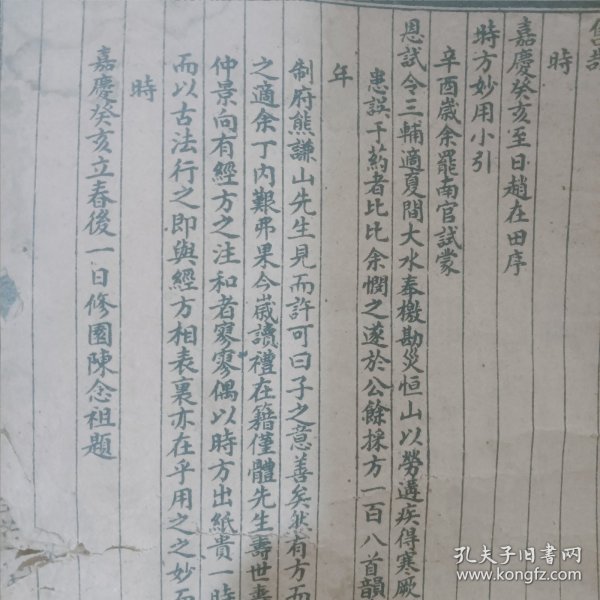 時
嘉慶癸亥至日趙在田序
時方妙用小引
辛酉歲余罷南宮試蒙
恩試令三輔適夏間大水奉檄勘災恒山以勞遘疾得寒厥
患誤于藥者比比余憫之遂於公餘採方一百八首韻
年
制府熊謙山先生見而許可曰子之意善矣然有方而
之適余丁內艱弗果今歲讀禮在籍僅體先生壽世
仲景向有經方之注和者寥寥偶以時方出紙貴一時
而以古法行之即與經方相表裏亦在乎用之之妙而
時
嘉慶癸亥立春後一日修園陳念祖題
孔夫子旧书网
www.kongfz.com